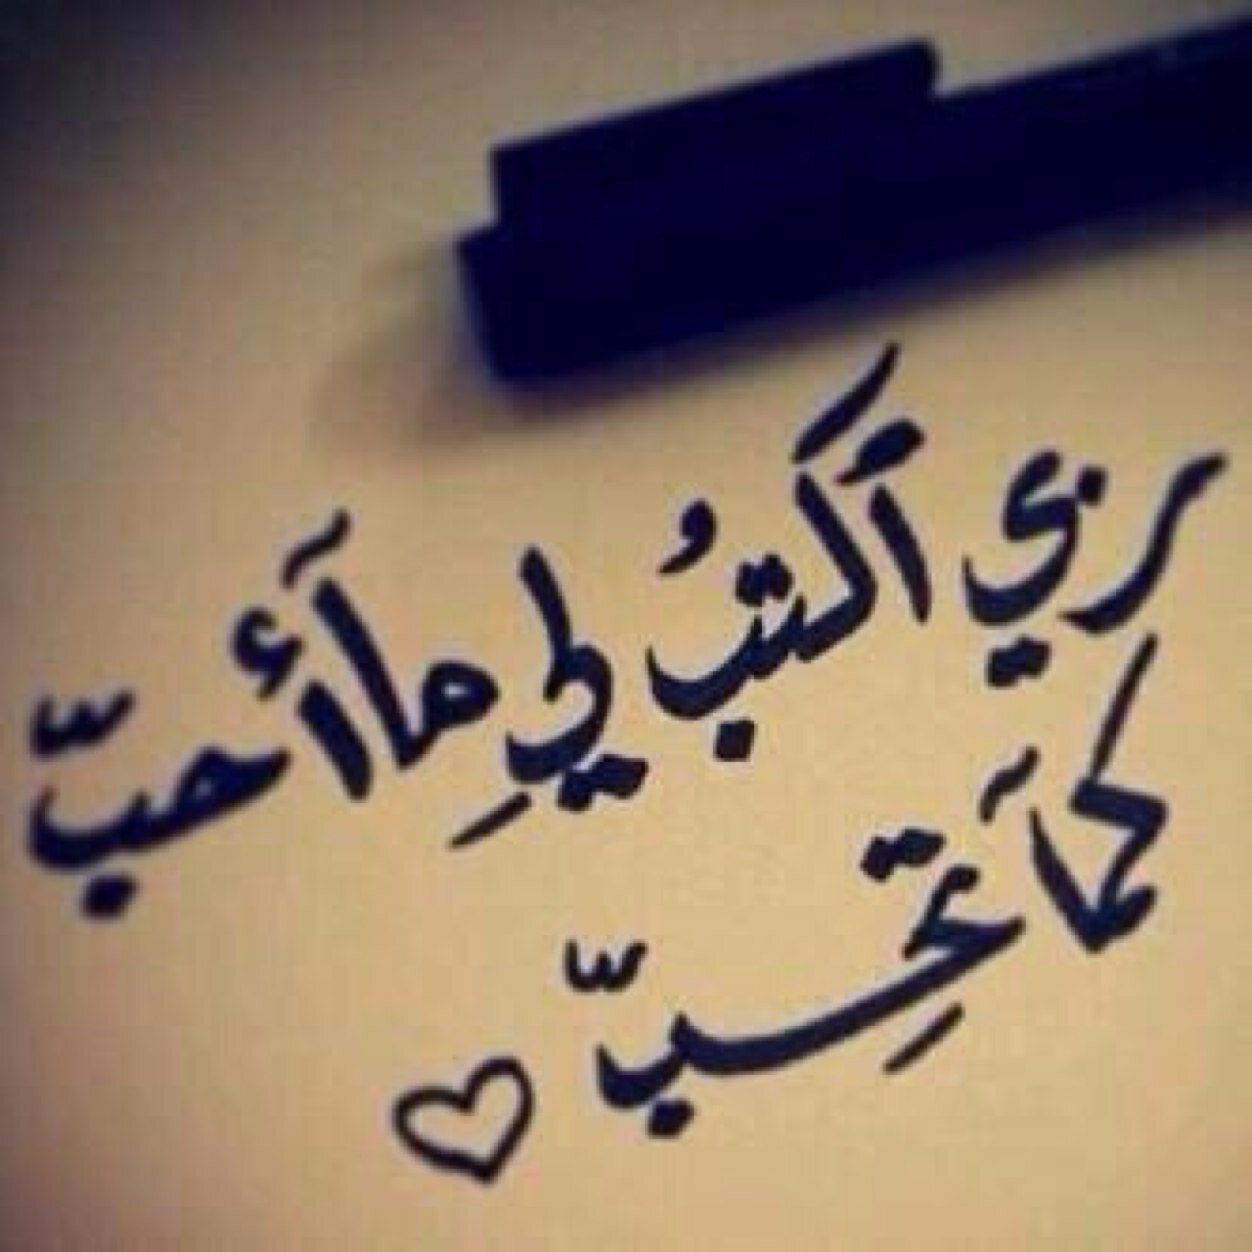 ربي أَكتبُ لِي مآ أحبّ
كمآ تحِبّ